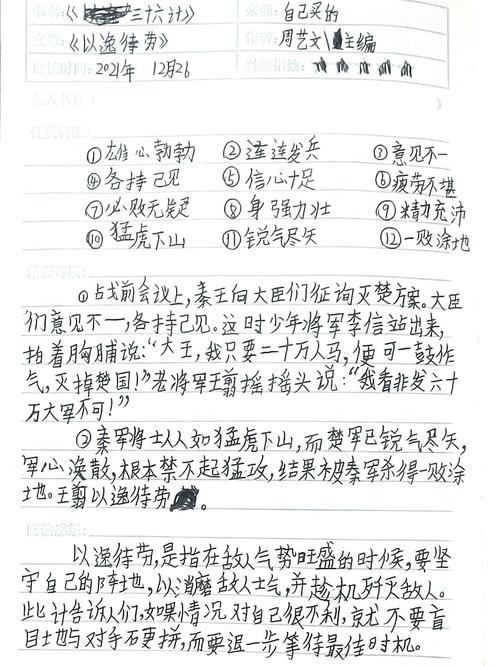 书名:《三十六计》 来源: 自己买的
文章:《以逸待劳》 作者: 周艺文\主编
阅读时间: 2021年 12月26 兴趣指数:
名人名言( )
优美词汇:
①雄心勃勃 ②连连发兵 ③意见不一
④各持己见 ⑤信心十足 ⑥疲劳不堪
⑦必败无疑 ⑧身强力壮 ⑨精力充沛
⑩猛虎下山 ⑪锐气尽矢 ⑫一败涂地
精彩句段:
①占战前会议上,秦王向大臣们征询灭楚方案。大臣
们意见不一,各持己见。这时少年将军李信站出来,
拍着胸脯说:“大王,我只要二十万人马,便可一鼓作
气,灭掉楚国!”老将军王翦摇摇头说:“我看非发六十
万大军不可!”
②秦军将士人人如猛虎下山,而楚军已锐气尽矢,
军心涣散,根本禁不起猛攻,结果被秦军杀得一败涂
地。王翦以逸待劳。
阅读感想:
以逸待劳,是指在敌人气势旺盛的时候,要坚
守自己的阵地,以消磨敌人士气,并趁机歼灭敌人。
此计告诉人们,如果情况对自己很不利,就不要盲
目地与对手硬拼,而要退一步等待最佳时机。